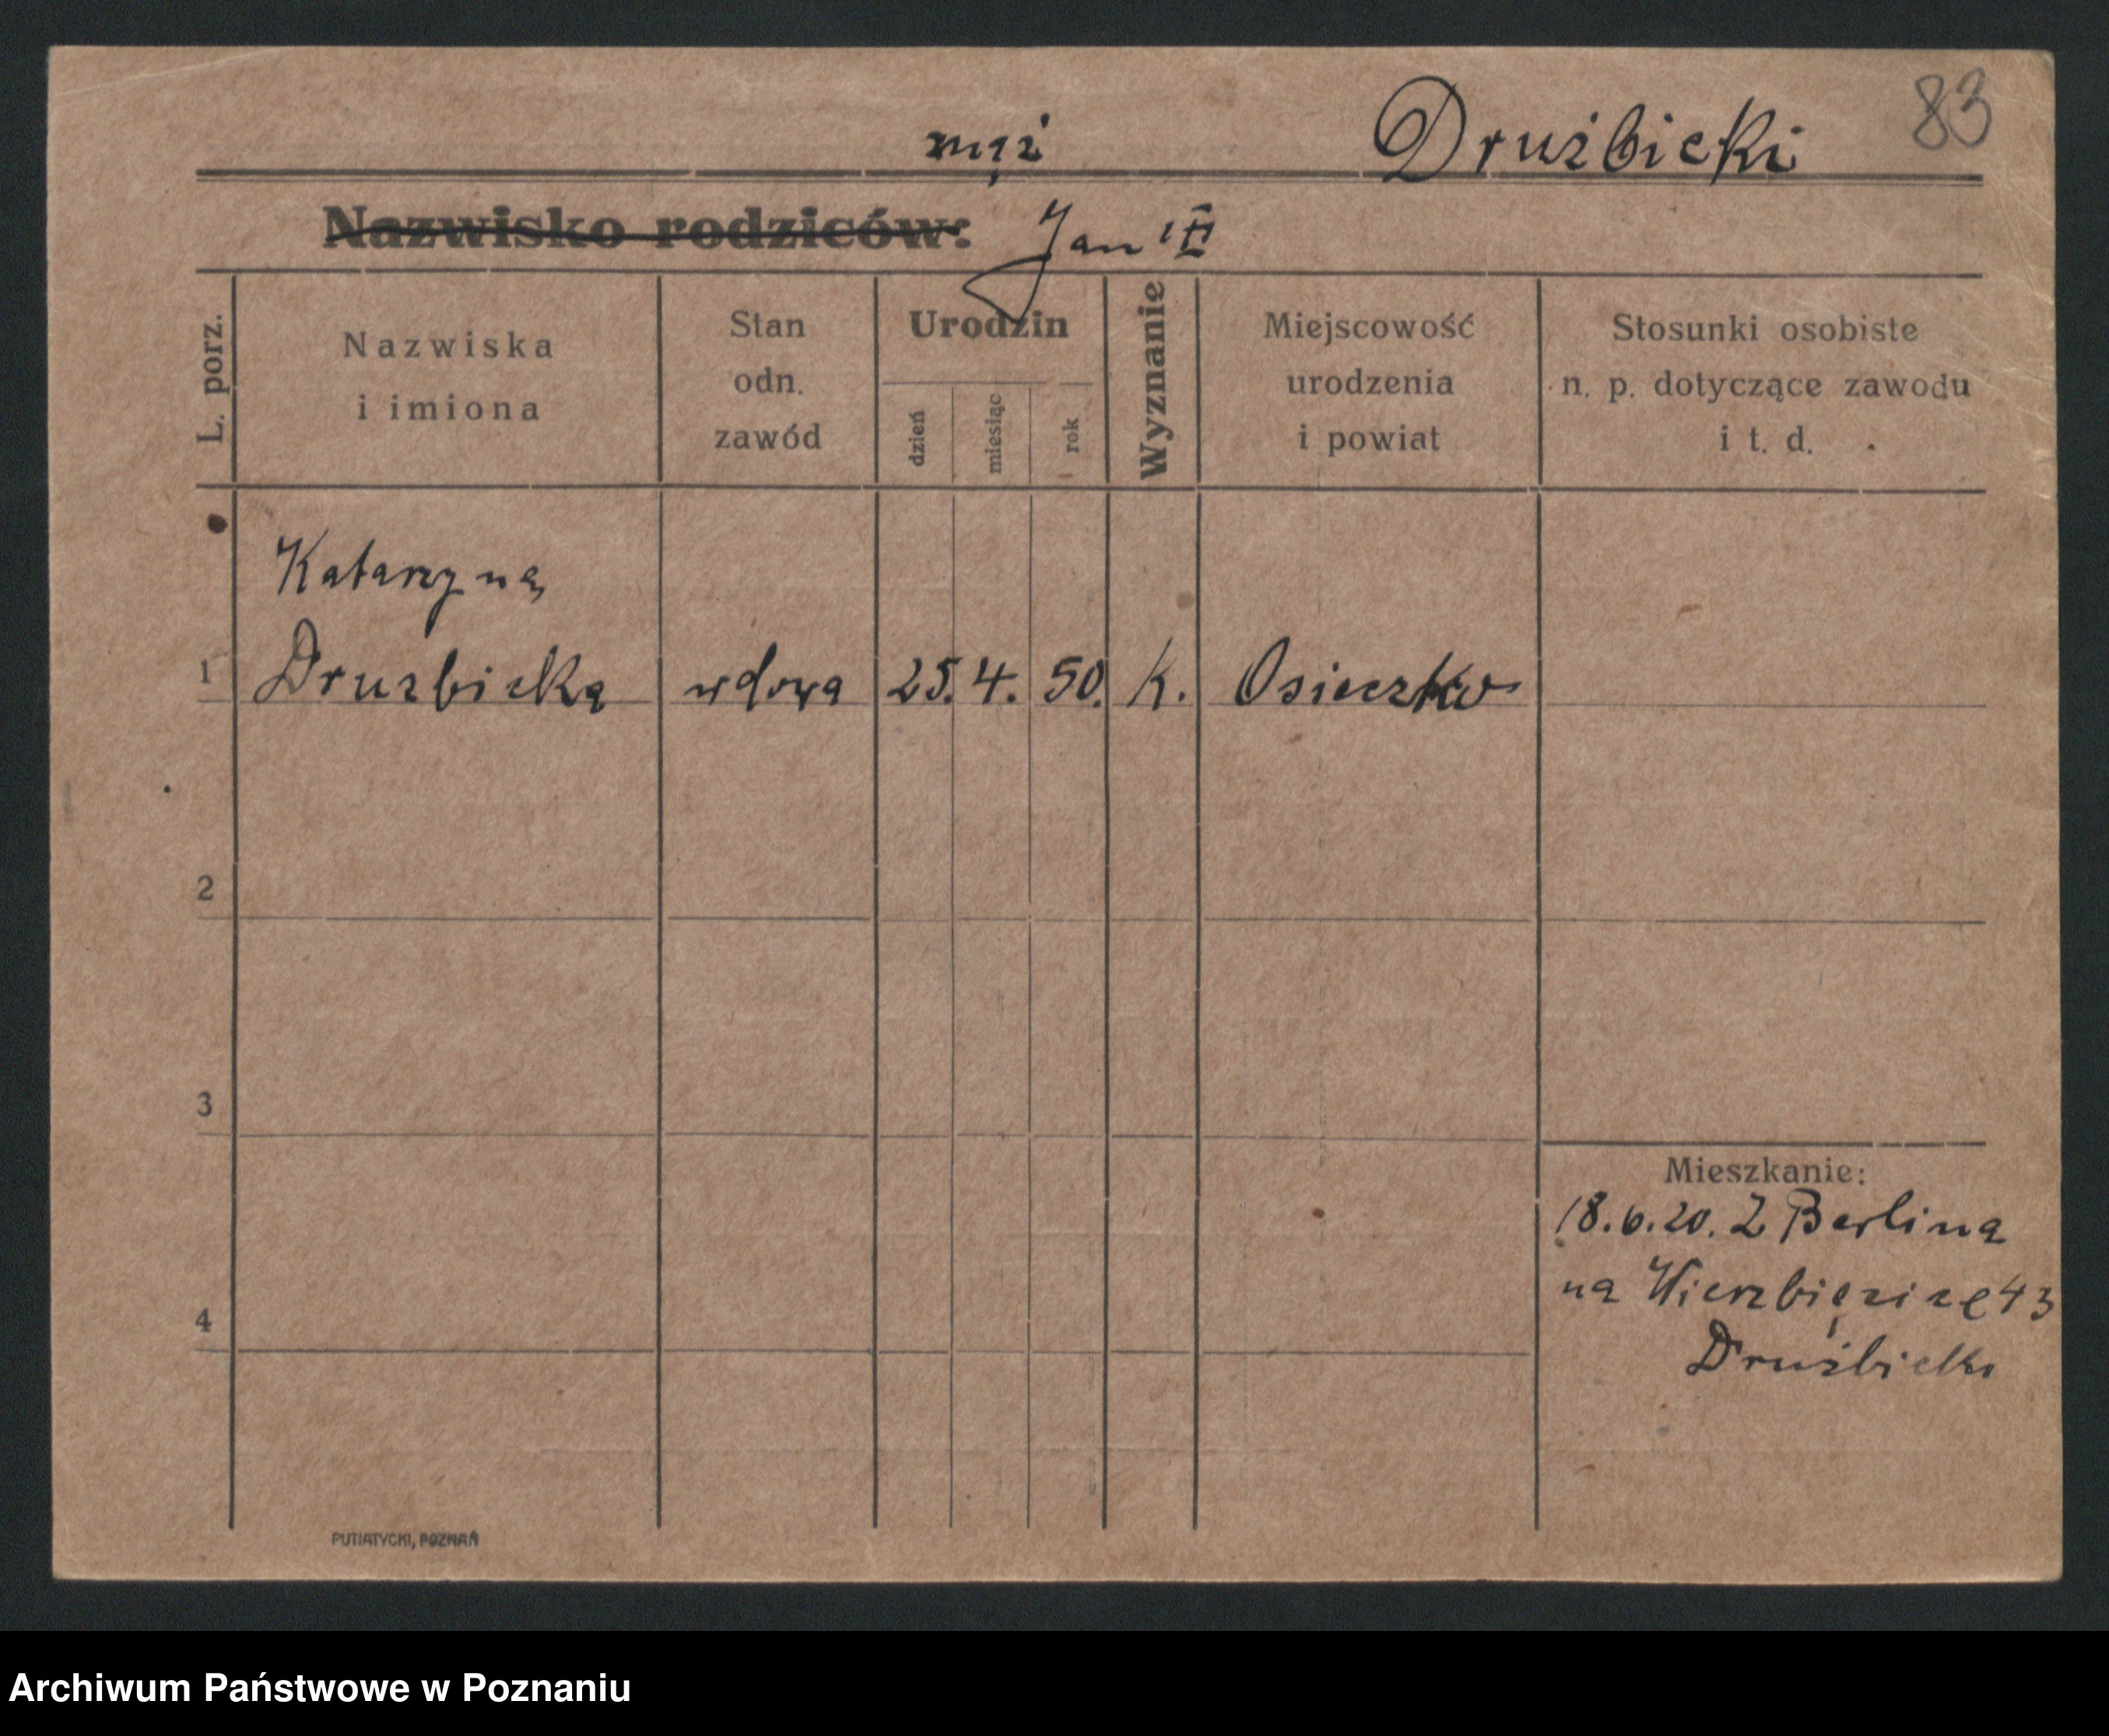 83
mąż Drużbicki
Nazwisko rodziców: Jan III
L. porz.
Nazwiska
i imiona
Stan
odn.
zawód
Urodzin
dzień
miesiąc
rok
Wyznanie
Miejscowość
urodzenia
i powiat
Stosunki osobiste
n. p. dotyczące zawodu
i t. d.
Katarzyna
1 Druzbicka wdowa 25. 4. 50. K. Osieczko
2
3
4
Mieszkanie:
18.6.20. Z Berlina
na Wierzbięcice 43
Drużbicki
PUTIATYCKI, POZNAŃ
Archiwum Państwowe w Poznaniu